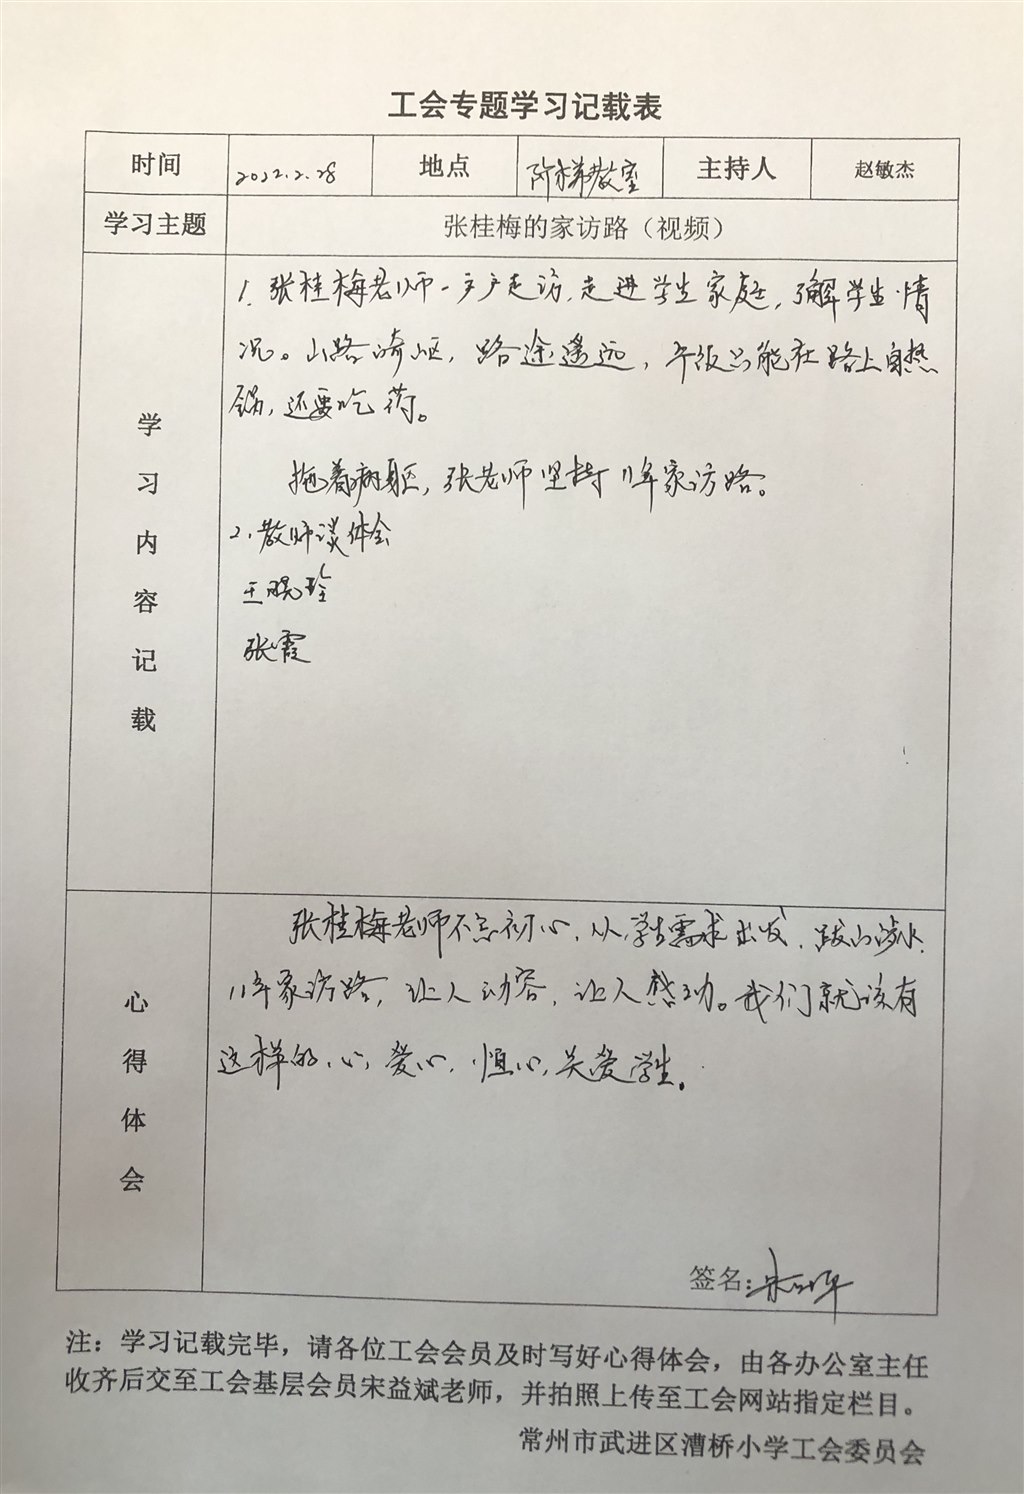 工会专题学习记载表
时间 2022.2.28 地点 阶梯教室 主持人 赵敏杰
学习主题 张桂梅的家访路（视频）
学习内容记载
1. 张桂梅老师一户户走访，走进学生家庭，了解学生情
况。山路崎岖，路途遥远，午饭只能在路上自热
锅，还要吃药。
拖着病躯，张老师坚持11年家访路。
2. 教师谈体会
王晓玲
张霞
心得体会
张桂梅老师不忘初心，从学生需求出发，跋山涉水，
11年家访路，让人动容，让人感动。我们就该有
这样的心，爱心，恒心，关爱学生。
签名：
注：学习记载完毕，请各位工会会员及时写好心得体会，由各办公室主任
收齐后交至工会基层会员宋益斌老师，并拍照上传至工会网站指定栏目。
常州市武进区漕桥小学工会委员会